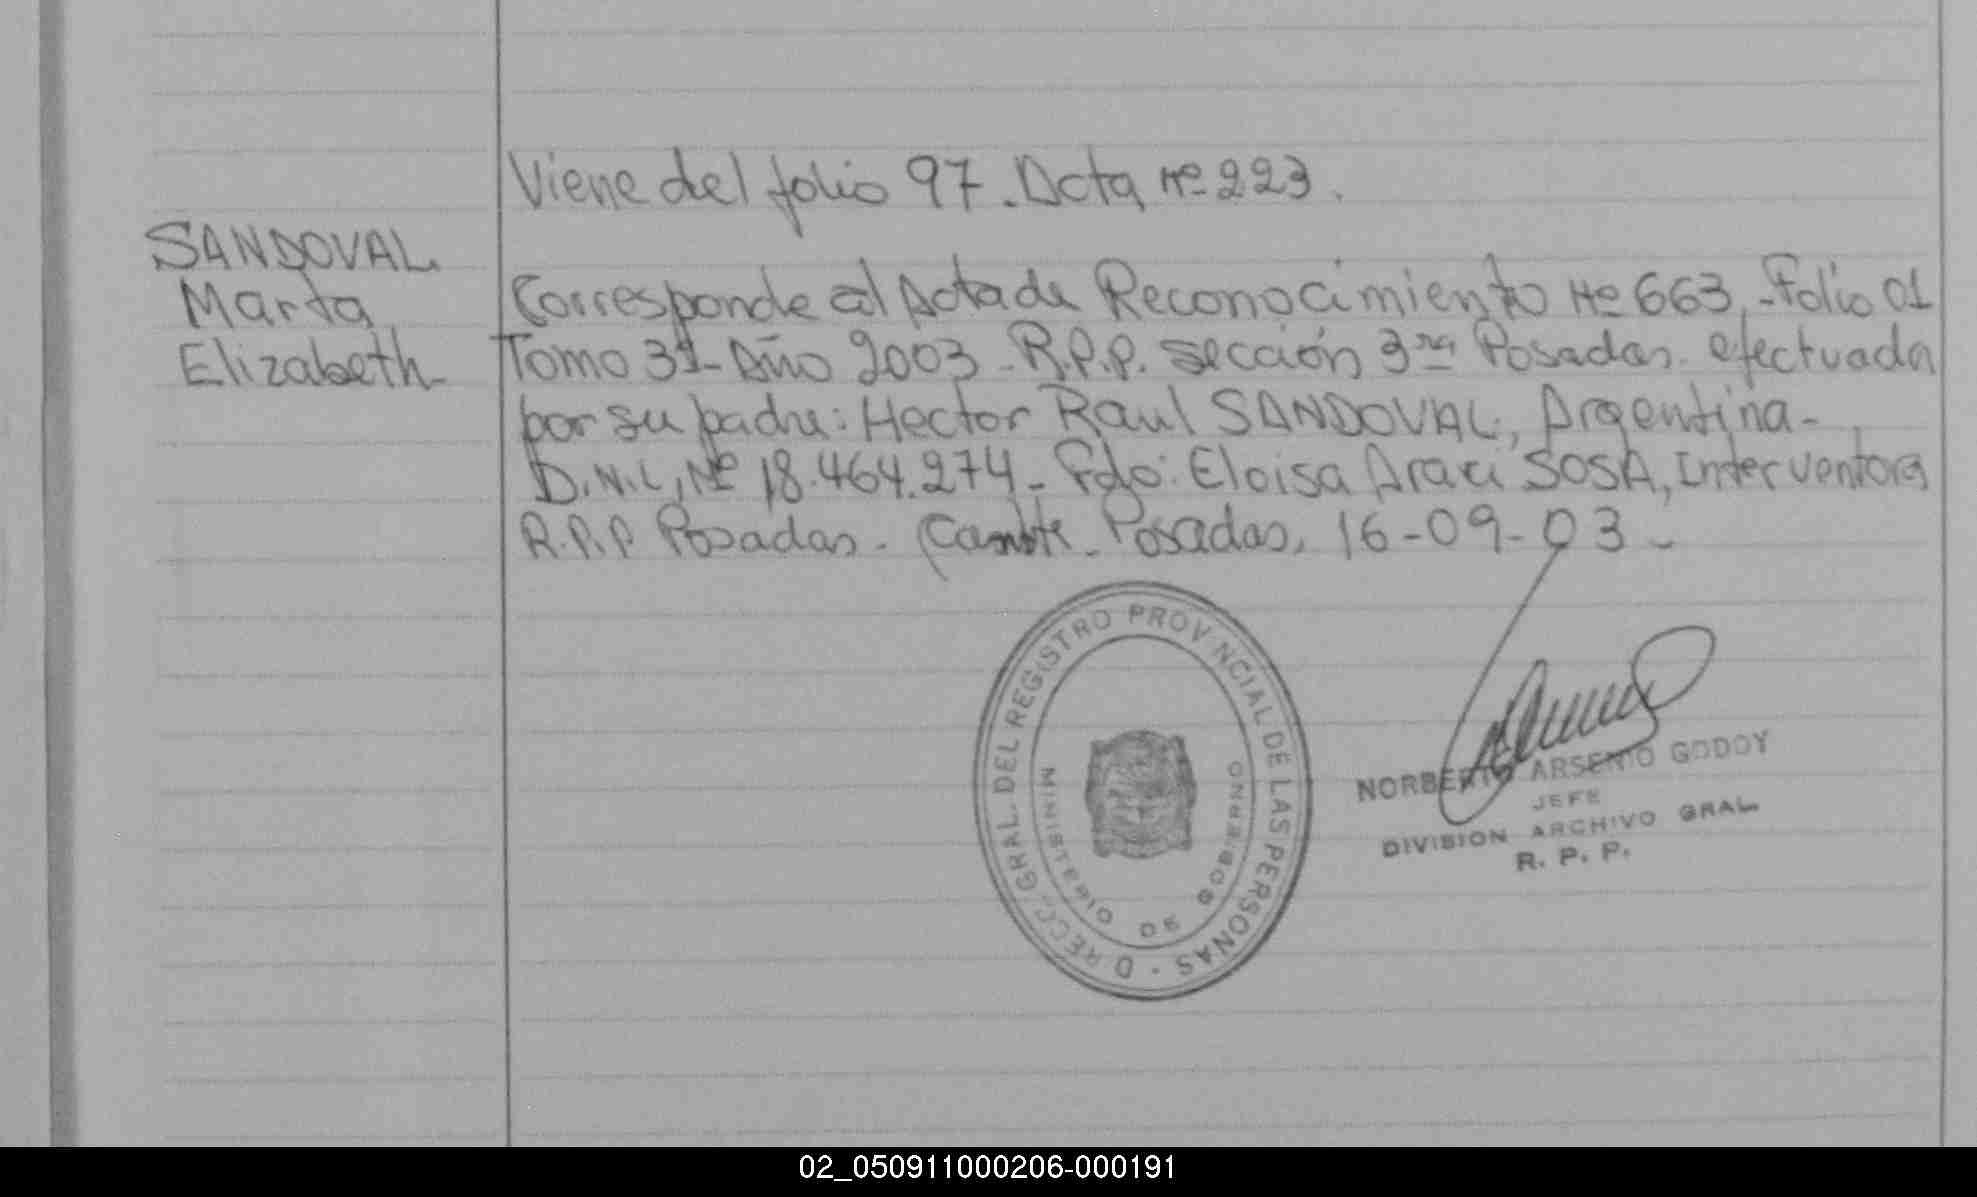 Viene del folio 97. Acta Nº 223.
SANDOVAL
Marta
Elizabeth
Corresponde al Acta de Reconocimiento Nº 663, - Folio 01
Tomo 3º - Año 2003 - R.P.P. sección 3ra Posadas. efectuada
por su padre: Hector Raul SANDOVAL, Argentina -
D.N.I, Nº 18.464.274 - Fdo: Eloisa Araci SOSA, Interventora
R.P.P Posadas. - Posadas, 16-09-03 -
DIRECC. GRAL. DEL REGISTRO PROVINCIAL DE LAS PERSONAS
MINISTERIO DE GOBIERNO
NORBERTO ARSENIO GODOY
JEFE
DIVISION ARCHIVO GRAL
R. P. P.
02_050911000206-000191